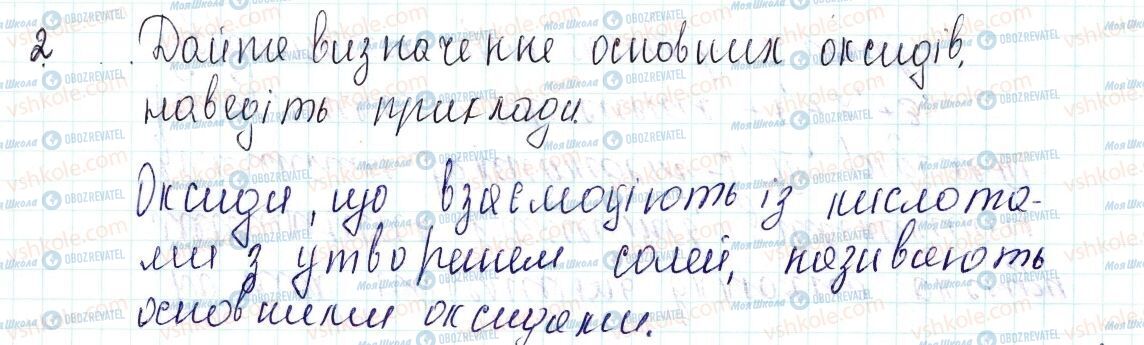 2 Дайте визначення основних оксидів,
наведіть приклади.
Оксиди, що взаємодіють із кислота-
ми з утворенням солей, називають
основними оксидами.